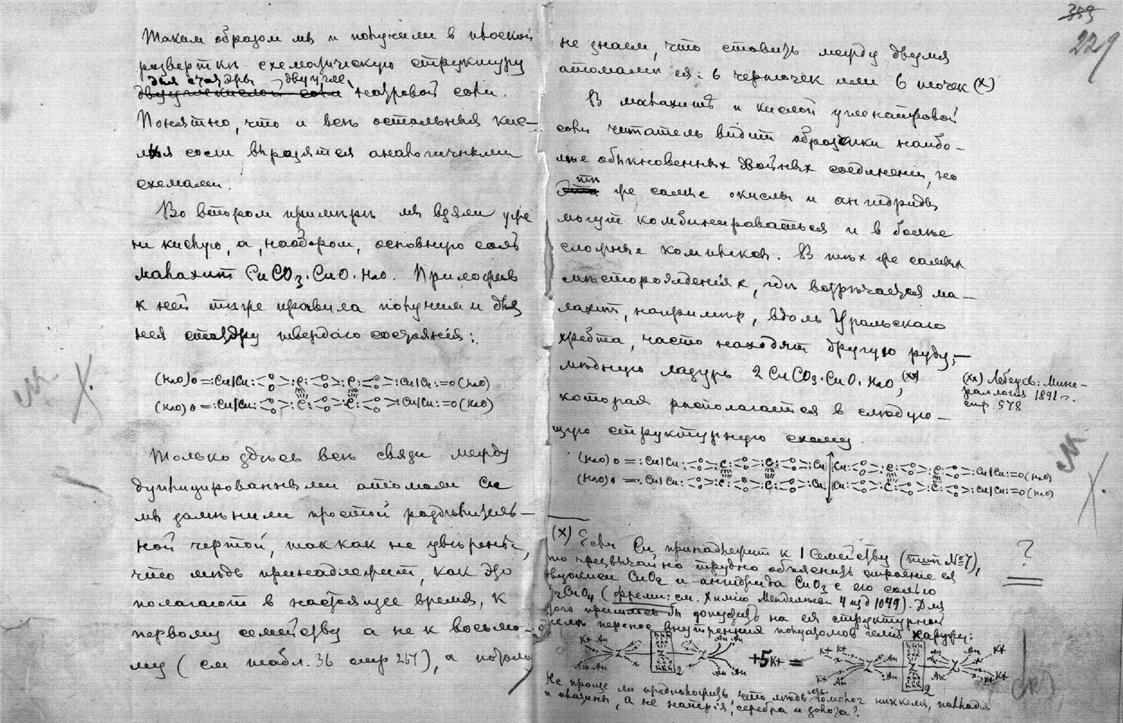 Таким образом мы и получаем в плоской
развертки схематическую структуру
для стадры двууглe
натровой соли.
Понятно, что и все остальныя кис-
лыя соли выразятся аналогичными
схемами.
Во втором примере мы взяли уже
не кислую, а, наоборот, основную соль
малахит CuCO₃·CuO·H₂O. Приложив
к ней теже правила получим и для
нея стадру твердаго состоянiя:
(H₂O)O=:Cu|Cu: :Cu|Cu:=O(H₂O)
(H₂O)O=:Cu|Cu: :Cu|Cu:=O(H₂O)
Только здесь все связи между
дуплицированными атомами Cu
мы заменили простой разделитель-
ной чертой, так как не уверены,
что медь принадлежит, как это
полагают в настоящее время, к
первому семейству а не к восьмо-
му (см табл. 36 стр 267), а потому
359
229
не знаем, что ставить между двумя
атомами ея: 6 черточек или 6 точек (x)
В малахите и кислой угленатровой
соли читатель видит образчики наибо-
лее обыкновенных двойных соединенiй, но
те же самые окислы и ангидриды
могут комбинироваться и в более
сложные комплексы. В тех же самых
месторожденiях, где встречается ма-
лахит, например, вдоль Уральскаго
хребта, часто находят другую руду,-
медную лазурь 2CuCO₃·CuO·H₂O, (xx)
(xx) Лебедев: Мине-
ралогiя 1891 г.
стр. 578
которая располагается в следую-
щую структурную схему.
(H₂O)O=:Cu|Cu: :Cu :Cu|Cu:=O(H₂O)
(H₂O)O=:Cu|Cu: :Cu :Cu|Cu:=O(H₂O)
(x) Если Cu принадлежит к I семейству (тип №7),
то чрезвычайно трудно объяснить строенiе ея
двуокиси CuO₂ и ангидрида CuO₃ с его солью
(Фреми: см. Химiю Менделеева 4 изд 1079). Для
этого пришлось бы допустить на ея структурной
перенос внутренних наружу:
+5K+ =
Не проще ли предположить что медь гомолог никкеля, палладiя
и платины, а не натрiя, серебра и золота?
?